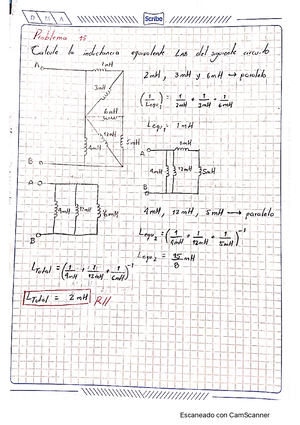 D M A
Scribe
Problema 15
Calcule la inductancia equivalente Lab del siguiente circuito
A
1mH
3mH
6mH
12mH
4mH
5mH
B
2mH, 3mH y 6mH → paralelo
(1/Lequ1) = 1/2mH + 1/3mH + 1/6mH
Lequ1 = 1mH
A
1mH
4mH
12mH
5mH
B
A
4mH
12mH
6mH
B
4mH, 12mH, 5mH → paralelo
Lequ2 = (1/4mH + 1/12mH + 1/5mH)⁻¹
Lequ2 = 15/8 mH
LTotal = (1/4mH + 1/12mH + 1/6mH)⁻¹
LTotal = 2mH R//
Escaneado con CamScanner